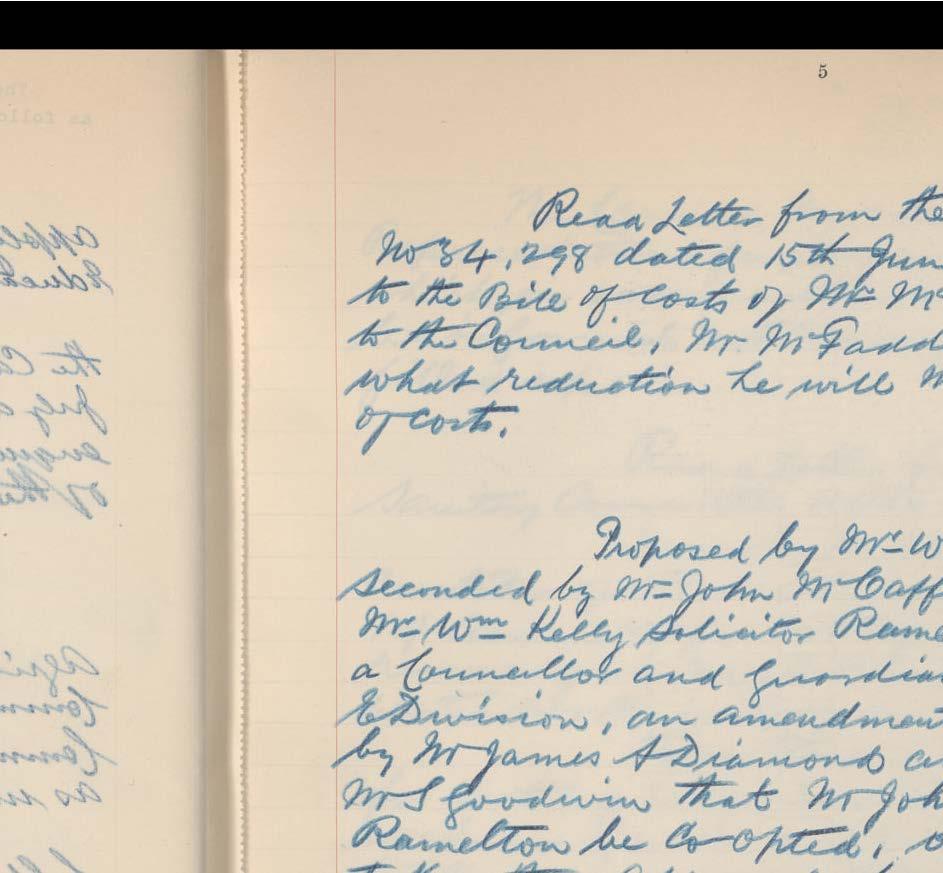 5
Read Letter from the
No 34,298 dated 15th Jun
to the Bill of Costs of Mr Mc
to the Council, Mr McFadd
what reduction he will m
of costs.
Proposed by Mr W
seconded by Mr John McCaff
Mr Wm Kelly Solicitor Rame
a Councillor and Guardian
E Division, an amendment
by Mr James A Diamond a
Mr S Goodwin that Mr Joh
Ramelton be Co-opted,